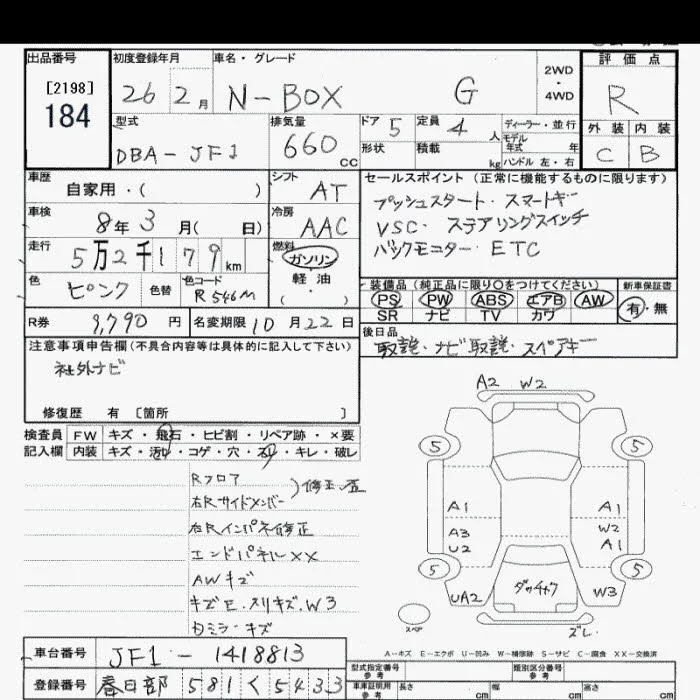 出品番号
[2198]
184
初度登録年月
26 2月
車名・グレード
N-BOX G
2WD
・
4WD
評価点
R
外装 内装
C B
型式
DBA-JF1
排気量
660 cc
ドア 5
定員 4人
形状
積載 kg
ディーラー・並行
モデル年式 年
ハンドル 左・右
車歴
自家用・( )
シフト
AT
セールスポイント(正常に機能するものに限ります)
プッシュスタート・スマートキー
VSC・ステアリングスイッチ
バックモニター・ETC
車検
8年3月( 日)
冷房
AAC
走行
5万2千179km
燃料
ガソリン
軽油
・
( )
色
ピンク
色替
色コード
R546M
装備品(純正品に限り○をつけてください)
PS PW ABS エアB AW
SR ナビ TV カワ
新車保証書
有・無
R券 9,790円
名変期限 10月22日
後日品
取説・ナビ取説・スペアキー
注意事項申告欄(不具合内容等は具体的に記入して下さい)
社外ナビ
修復歴 有 [箇所 ]
検査員
記入欄
FW キズ・飛石・ヒビ割・リペア跡・×要
内装 キズ・汚れ・コゲ・穴・スレ・キレ・破レ
Rフロア
右Rサイドメンバー
右Rインパネ修正
エンドパネルXX
AWキズ
キズE・スリキズ・W3
A2 W2
5 5
A1 A1
A3 W2
U2 A1
5 5
UA2 W3
スペア
ズレ
A-キズ E-エクボ U-凹み W-補修跡 S-サビ C-腐食 XX-交換済
車台番号 JF1-1418813
登録番号 春日部 581 く 5433
型式指定番号
参考
類別区分番号
参考
車車証明用
参考
長さ cm
幅 cm
高さ cm